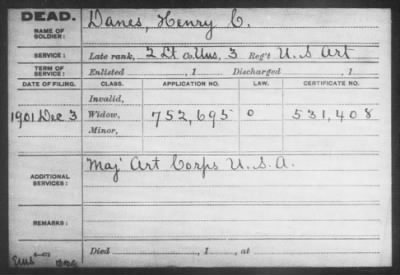 DEAD.
NAME OF SOLDIER: Danes, Henry C.
SERVICE: Late rank, 2 Lt Co. Uns, 3 Reg't U.S Art
TERM OF SERVICE: Enlisted , 1 Discharged , 1
DATE OF FILING. CLASS. APPLICATION NO. LAW. CERTIFICATE NO.
Invalid,
1901 Dec 3 Widow, 752,695 0 531,408
Minor,
ADDITIONAL SERVICES: Maj' Art Corps U.S.A.
REMARKS:
Died , 1 , at
6—472